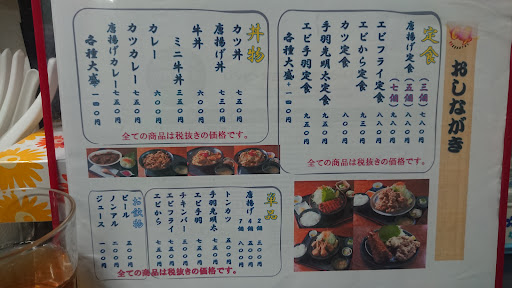 おしながき
定食
唐揚げ定食(三個)七八〇円
(五個)八八〇円
(七個)
エビフライ定食 八八〇円
エビから定食 八八〇円
カツ定食 八〇〇円
手羽先明太定食 九五〇円
エビ手羽定食 九五〇円
各種大盛+一四〇円
全ての商品は税抜きの価格です。
丼物
カツ丼 七五〇円
唐揚げ丼 七五〇円
牛丼 六〇〇円
ミニ牛丼 三五〇円
カレー 六〇〇円
カツカレー 七五〇円
唐揚げカレー 七五〇円
各種大盛 一四〇円
全ての商品は税抜きの価格です。
単品
唐揚げ 2個 三〇〇円
4個 五〇〇円
7個 八〇〇円
トンカツ
手羽先明太 七五〇円
エビ手羽 七五〇円
チキンバー
エビフライ 七五〇円
エビから 七五〇円
お飲物
ビール 五〇〇円
ノンアル
ジュース 一〇〇円
全ての商品は税抜きの価格です。